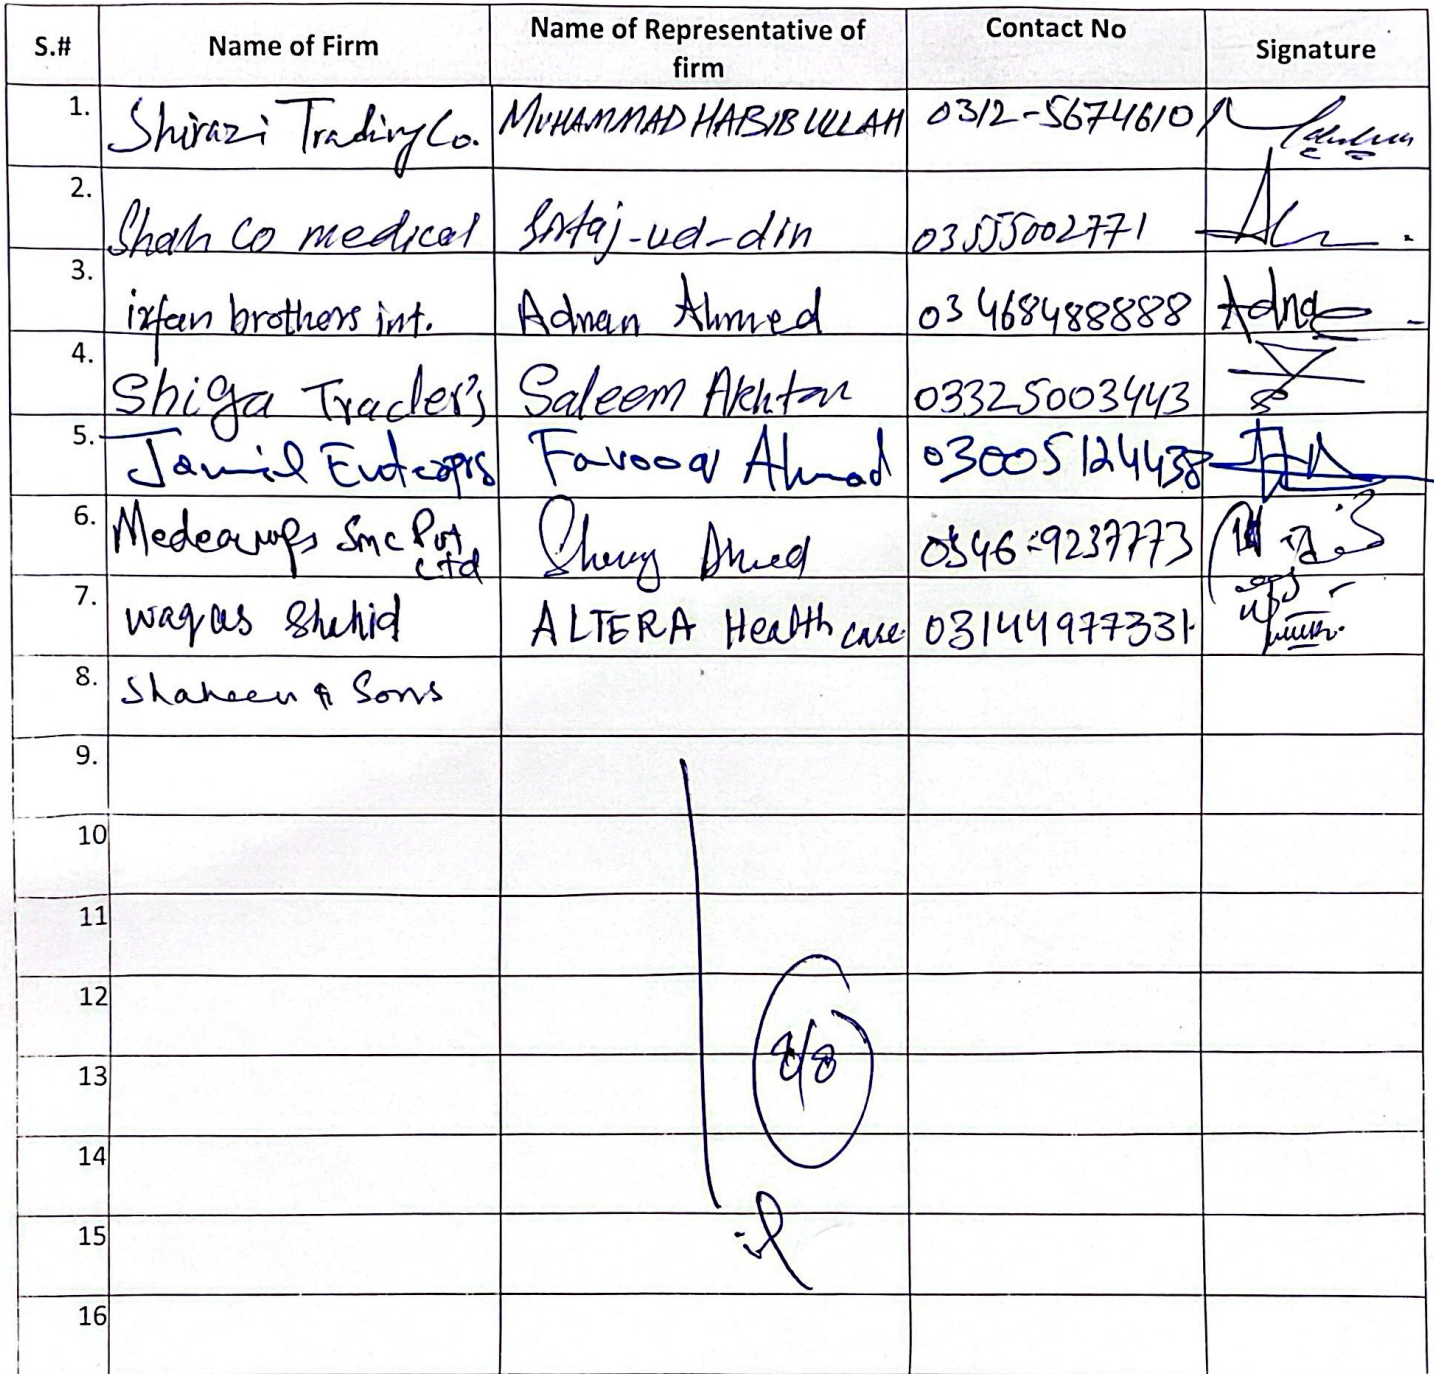 S.# Name of Firm Name of Representative of firm Contact No Signature
1. Shirazi Trading Co. MUHAMMAD HABIB ULLAH 0312-5674610
2. Shah Co medical Sirtaj-ud-din 03555002771
3. irfan brothers int. Adnan Ahmed 03468488888 Adna
4. Shiga Trader's Saleem Akhtar 03325003443
5. Jamil Farooq Ahmad 03005124438
6. Smc Pvt Ltd Ahmed 0346-9237773
7. waqas Shahid ALTERA Health care 03144977331
8. Shaheen & Sons
9.
10
11
12
13
8/8
14
15
16